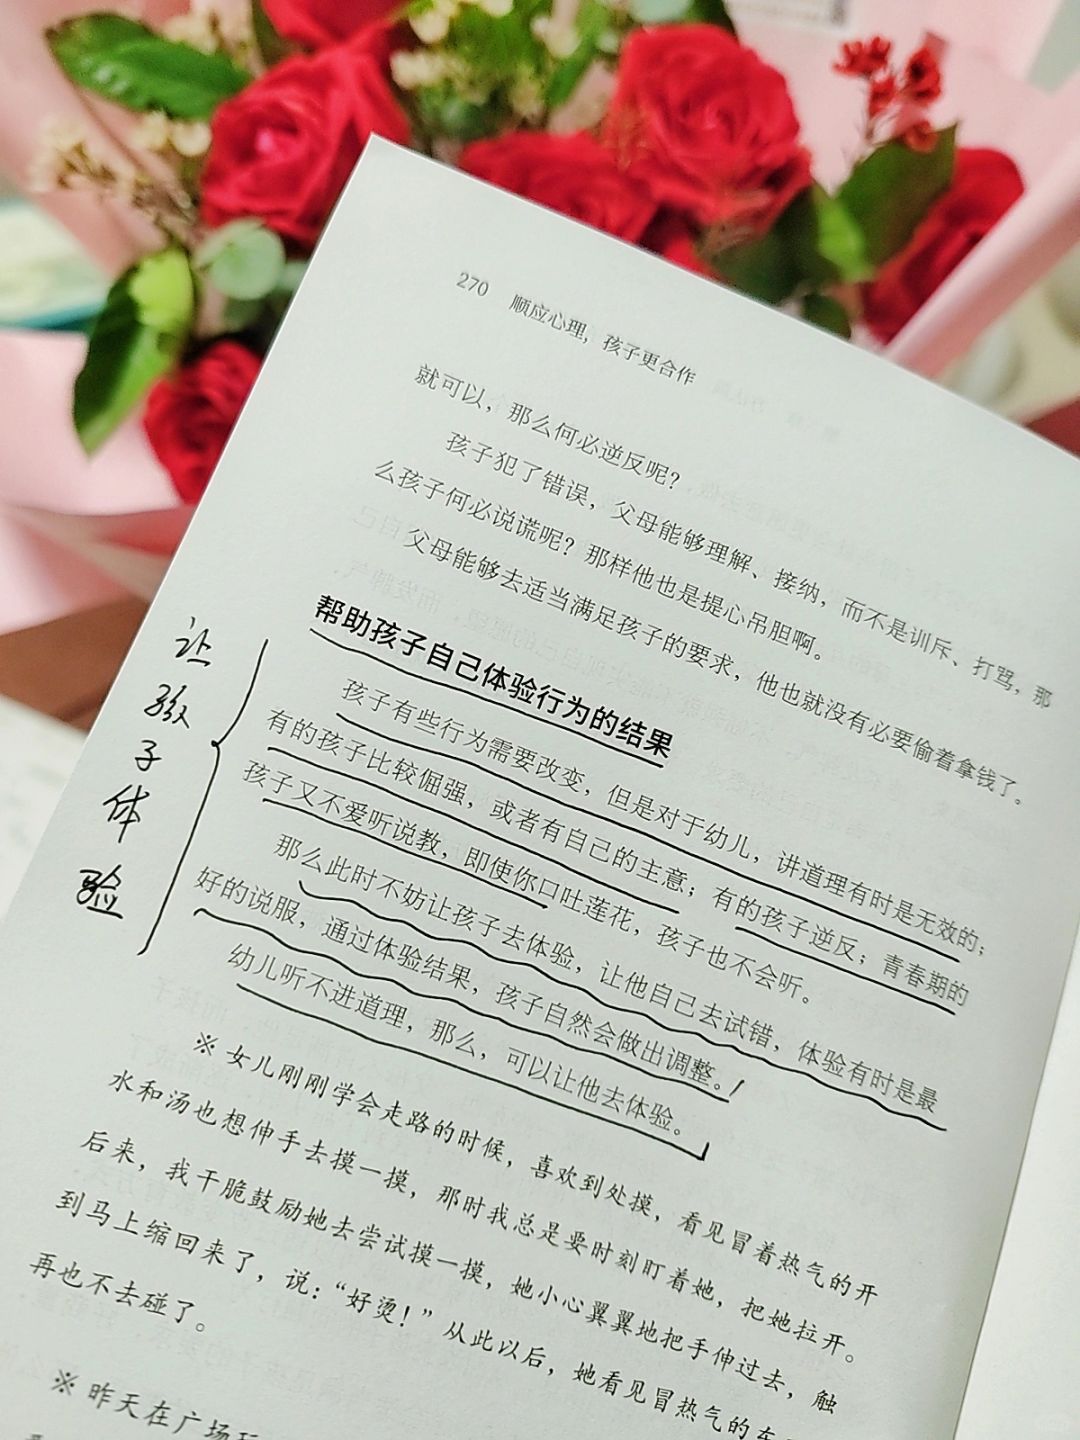 270 顺应心理，孩子更合作
就可以，那么何必逆反呢？
孩子犯了错误，父母能够理解、接纳，而不是训斥、打骂，那
么孩子何必说谎呢？那样他也是提心吊胆啊。
父母能够去适当满足孩子的要求，他也就没有必要偷着拿钱了。
帮助孩子自己体验行为的结果
孩子有些行为需要改变，但是对于幼儿，讲道理有时是无效的；
有的孩子比较倔强，或者有自己的主意；有的孩子逆反；青春期的
孩子又不爱听说教，即使你口吐莲花，孩子也不会听。
那么此时不妨让孩子去体验，让他自己去试错，体验有时是最
好的说服，通过体验结果，孩子自然会做出调整。
幼儿听不进道理，那么，可以让他去体验。
让
孩
子
体
验
※ 女儿刚刚学会走路的时候，喜欢到处摸，看见冒着热气的开
水和汤也想伸手去摸一摸，那时我总是要时刻盯着她，把她拉开。
后来，我干脆鼓励她去尝试摸一摸，她小心翼翼地把手伸过去，触
到马上缩回来了，说：“好烫！”从此以后，她看见冒热气的东
再也不去碰了。
※ 昨天在广场玩